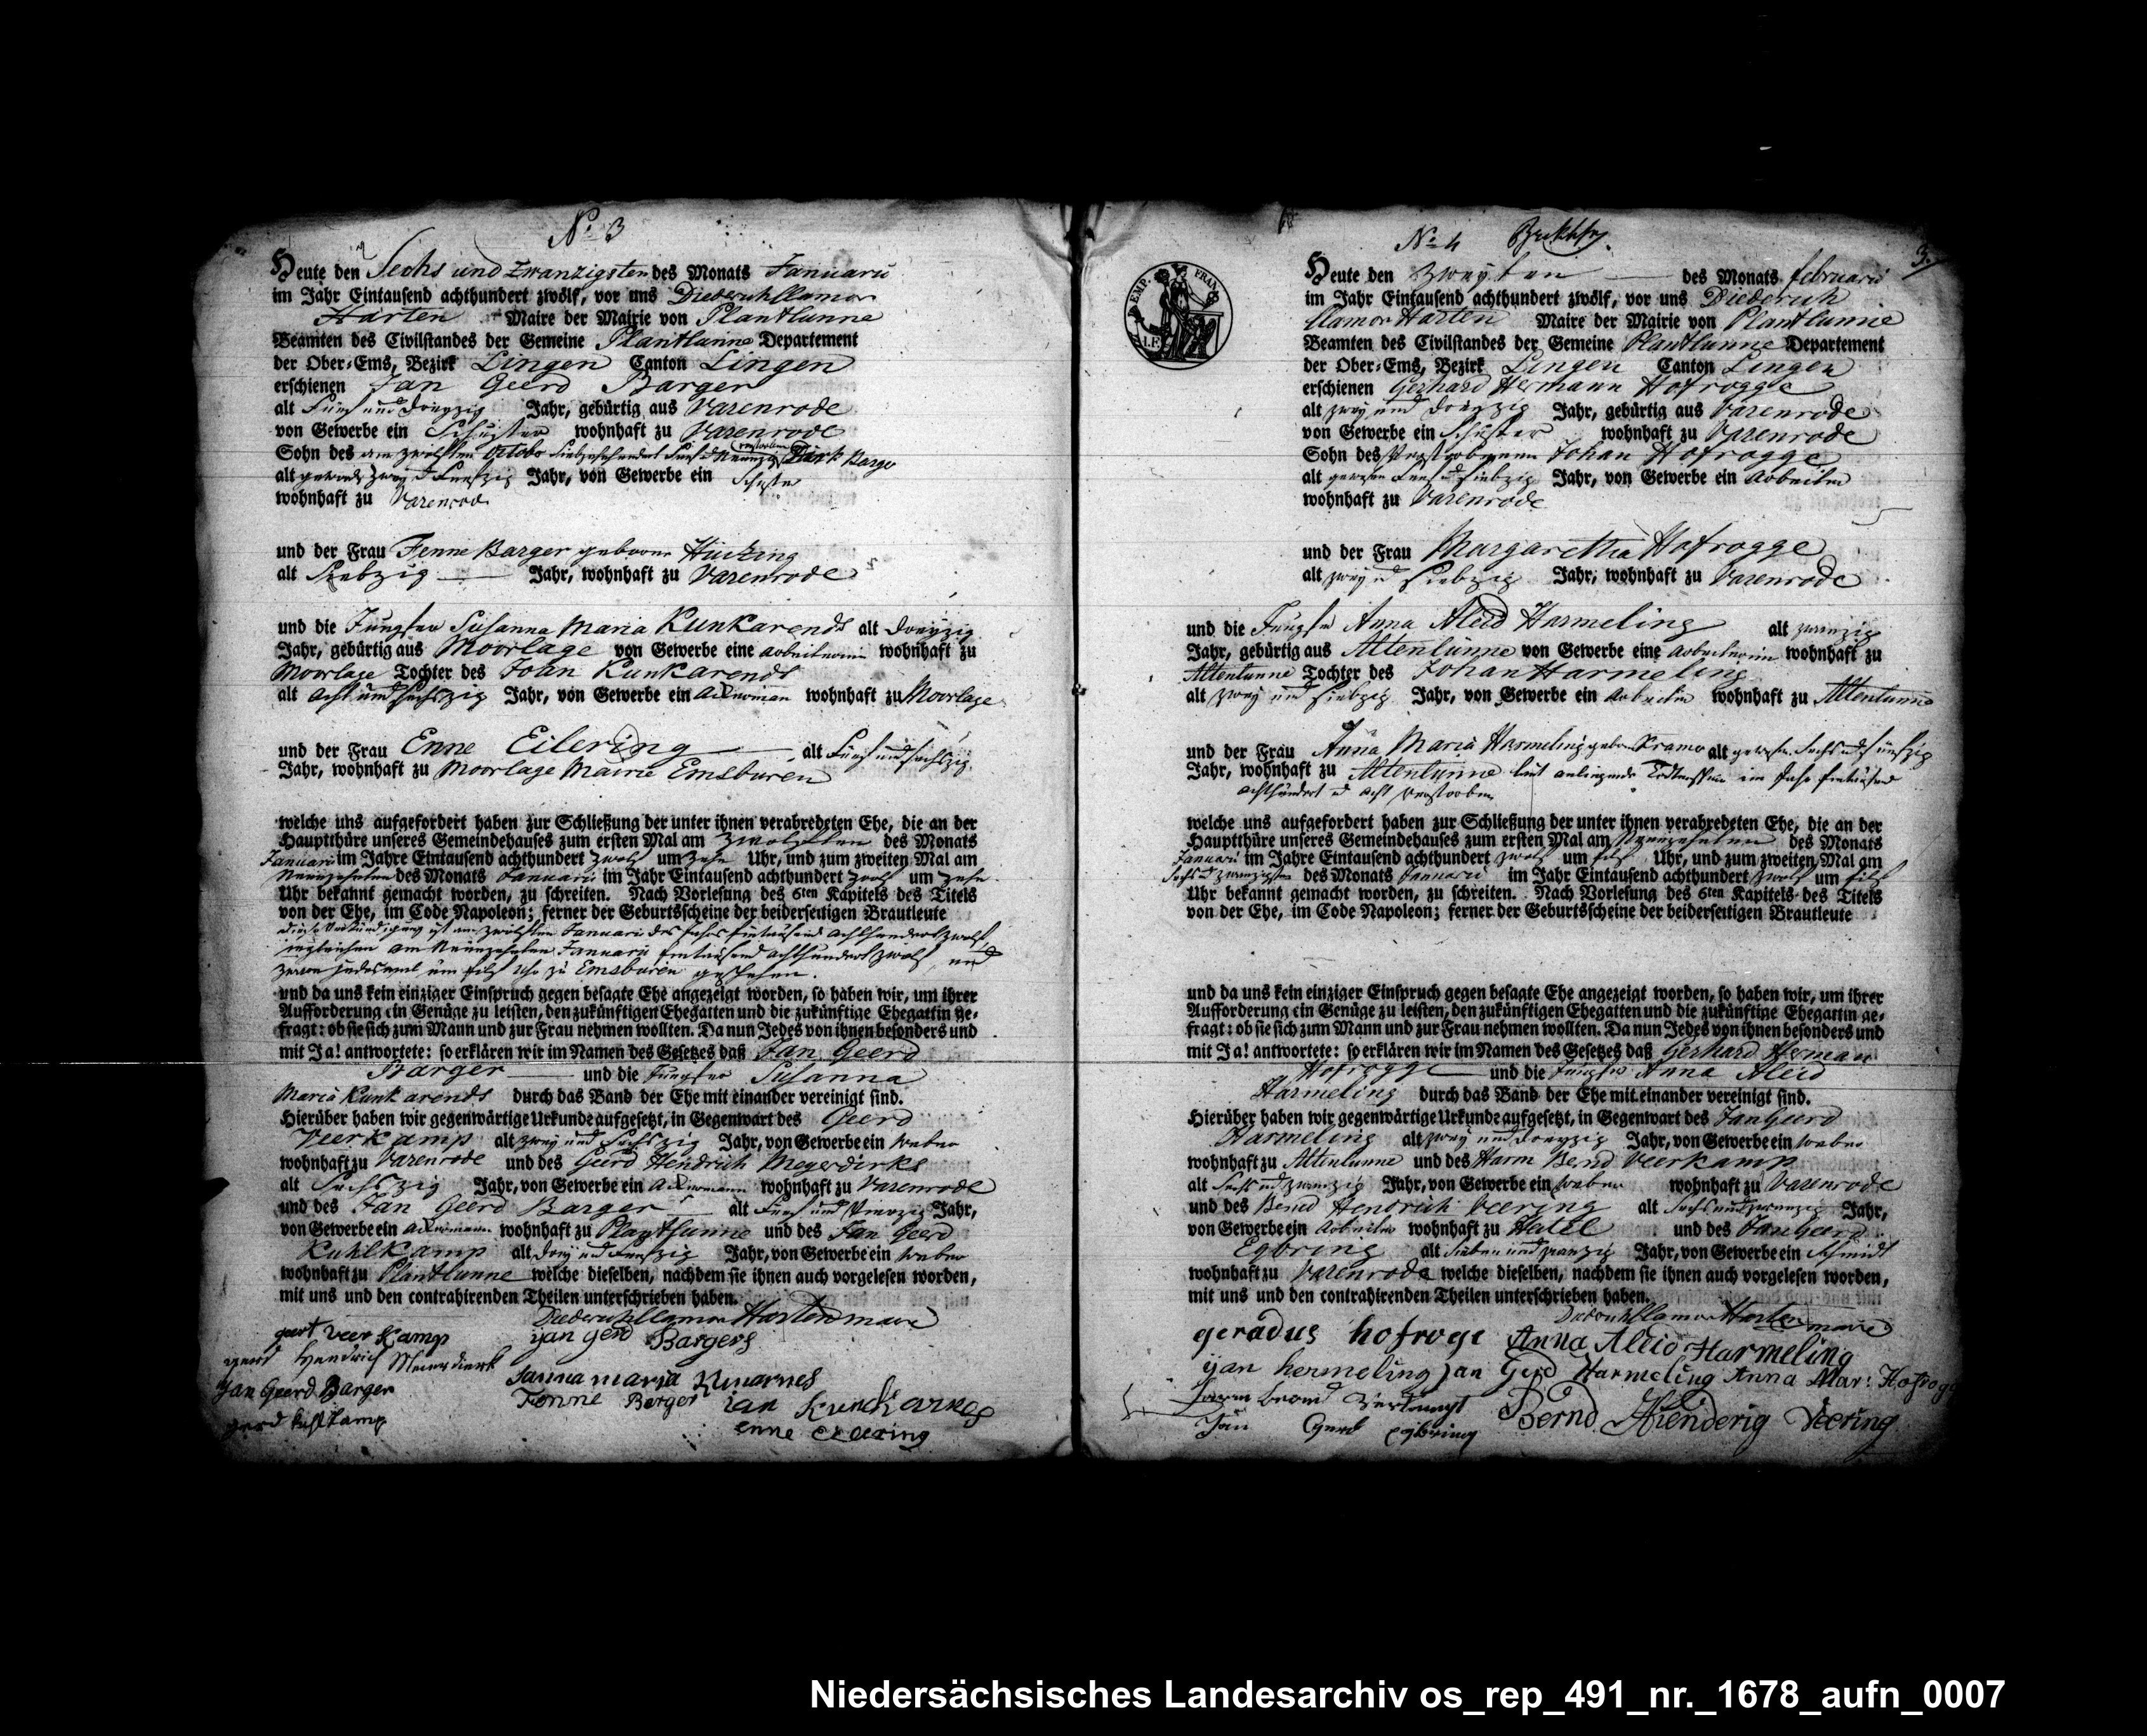 No 3
Heute den Sechs und Zwanzigsten des Monats Januarii
im Jahr Eintausend achthundert zwölf, vor uns Diederich Clamor
Harten Maire der Mairie von Plantlunne
Beamten des Civilstandes der Gemeine Plantlunne Departement
der Ober-Ems, Bezirk Lingen Canton Lingen
erschienen Jan Geerd Barger
alt Fünf und Dreyzig Jahr, gebürtig aus Varenrode
von Gewerbe ein Schuster wohnhaft zu Varenrode
Sohn des am zwölften October Siebzehnhundert Fünf u Neunzig verstorbenen Dirk Barger
alt gewesen zwey u Funfzig Jahr, von Gewerbe ein Schuster
wohnhaft zu Varenrode
und der Frau Fenne Barger geboren Hücking
alt Siebzig Jahr, wohnhaft zu Varenrode
und die Jungfer Susanna Maria Kunkarends alt Dreyzig
Jahr, gebürtig aus Moorlage von Gewerbe eine Arbeiterin wohnhaft zu
Moorlage Tochter des Johan Kunkarends
alt Acht und Sechszig Jahr, von Gewerbe ein Ackersman wohnhaft zu Moorlage
und der Frau Enne Eilering alt Fünf und Sechszig
Jahr, wohnhaft zu Moorlage Mairie Emsburen
welche uns aufgefordert haben zur Schließung der unter ihnen verabredeten Ehe, die an der
Hauptthüre unseres Gemeindehauses zum ersten Mal am zwölften des Monats
Januarii im Jahre Eintausend achthundert zwölf um zehn Uhr, und zum zweiten Mal am
Neunzehnten des Monats Januarii im Jahr Eintausend achthundert zwölf um zehn
Uhr bekannt gemacht worden, zu schreiten. Nach Vorlesung des 6ten Kapitels des Titels
von der Ehe, im Code Napoleon; ferner der Geburtsscheine der beiderseitigen Brautleute
diese Verkündigung ist am zwölften Januarii des Jahrs Eintausend Achthundert zwölf
imgleichen am Neunzehnten Januarii Eintausend Achthundert zwölf und
zwar jedesmal um eilf Uhr zu Emsburen geschehen.
und da uns kein einziger Einspruch gegen besagte Ehe angezeigt worden, so haben wir, um ihrer
Aufforderung ein Genüge zu leisten, den zukünftigen Ehegatten und die zukünftige Ehegattin ge-
fragt: ob sie sich zum Mann und zur Frau nehmen wollten. Da nun Jedes von ihnen besonders und
mit Ja! antwortete: so erklären wir im Namen des Gesetzes daß Jan Geerd
Barger und die Jungfer Susanna
Maria Kunkarends durch das Band der Ehe mit einander vereinigt sind.
Hierüber haben wir gegenwärtige Urkunde aufgesetzt, in Gegenwart des Geerd
Veerkamp alt zwey und Sechszig Jahr, von Gewerbe ein Weber
wohnhaft zu Varenrode und des Geerd Hendrich Meyerdirks
alt Sechszig Jahr, von Gewerbe ein Ackersmann wohnhaft zu Varenrode
und des Jan Geerd Barger alt Fünf und Vierzig Jahr,
von Gewerbe ein Ackersmann wohnhaft zu Plantlunne und des Jan Geerd
Kuhlkamp alt Drey und Funfzig Jahr, von Gewerbe ein Weber
wohnhaft zu Plantlunne welche dieselben, nachdem sie ihnen auch vorgelesen worden,
mit uns und den contrahirenden Theilen unterschrieben haben.
Diederich Clamor Harten maire
geert Veerkamp
ijan gerd Bargers
gerd Hendrich Meierdierk
Jan Geerd Barger
Sanna maria Kunarnes
Fenne Berger
ian Kunckarnes
gerd kuhlkamp
enne eilering
No 4
3.
EMP. FRAN.
Heute den Zweyten des Monats februarii
im Jahr Eintausend achthundert zwölf, vor uns Diederich
Clamor Harten Maire der Mairie von Plantlunne
Beamten des Civilstandes der Gemeine Plantlunne Departement
der Ober-Ems, Bezirk Lingen Canton Lingen
erschienen Gerhard Hermann Hofrogge
alt zwey und Dreyzig Jahr, gebürtig aus Varenrode
von Gewerbe ein Schuster wohnhaft zu Varenrode
Sohn des Verstorbenen Johan Hofrogge
alt gewesen Fünf u Siebzig Jahr, von Gewerbe ein Arbeiter
wohnhaft zu Varenrode
und der Frau Margaretha Hofrogge
alt zwey u Siebzig Jahr, wohnhaft zu Varenrode
und die Jungfer Anna Aleid Harmeling alt zwanzig
Jahr, gebürtig aus Altenlünne von Gewerbe eine Arbeiterin wohnhaft zu
Altenlunne Tochter des Johan Harmeling
alt zwey und Siebzig Jahr, von Gewerbe ein Arbeiter wohnhaft zu Altenlunne
und der Frau Anna Maria Harmeling gebor Kramer alt gewesen Sechs und Funfzig
Jahr, wohnhaft zu Altenlunne laut anliegende Todtenschein im Jahr Eintausend
achthundert u acht verstorben
welche uns aufgefordert haben zur Schließung der unter ihnen verabredeten Ehe, die an der
Hauptthüre unseres Gemeindehauses zum ersten Mal am Neunzehnten des Monats
Januarii im Jahre Eintausend achthundert zwölf um eilf Uhr, und zum zweiten Mal am
Sechs u zwanzigsten des Monats Januarii im Jahr Eintausend achthundert zwölf um eilf
Uhr bekannt gemacht worden, zu schreiten. Nach Vorlesung des 6ten Kapitels des Titels
von der Ehe, im Code Napoleon; ferner der Geburtsscheine der beiderseitigen Brautleute
und da uns kein einziger Einspruch gegen besagte Ehe angezeigt worden, so haben wir, um ihrer
Aufforderung ein Genüge zu leisten, den zukünftigen Ehegatten und die zukünftige Ehegattin ge-
fragt: ob sie sich zum Mann und zur Frau nehmen wollten. Da nun Jedes von ihnen besonders und
mit Ja! antwortete: so erklären wir im Namen des Gesetzes daß Gerhard Herman
Hofrogge und die Jungfer Anna Aleid
Harmeling durch das Band der Ehe mit einander vereinigt sind.
Hierüber haben wir gegenwärtige Urkunde aufgesetzt, in Gegenwart des Jan Geerd
Harmeling alt zwey und Dreyzig Jahr, von Gewerbe ein Weber
wohnhaft zu Altenlunne und des Harm Bernd Veerkamp
alt Sechs u zwanzig Jahr, von Gewerbe ein Weber wohnhaft zu Varenrode
und des Bernd Hendrich Veering alt Sechs und zwanzig Jahr,
von Gewerbe ein Arbeiter wohnhaft zu Hatel und des Jan Geerd
Egbring alt Sieben und zwanzig Jahr, von Gewerbe ein Schmidt
wohnhaft zu Varenrode welche dieselben, nachdem sie ihnen auch vorgelesen worden,
mit uns und den contrahirenden Theilen unterschrieben haben.
Diederich Clamor Harten maire
geradus hofroge Anna Aleid Harmeling
ijan hermeling Jan Gerd Harmeling Anna Mar: Hofrogge
Jan Gerd egbring Bernd Hienderig Veering
Niedersächsisches Landesarchiv os_rep_491_nr._1678_aufn_0007